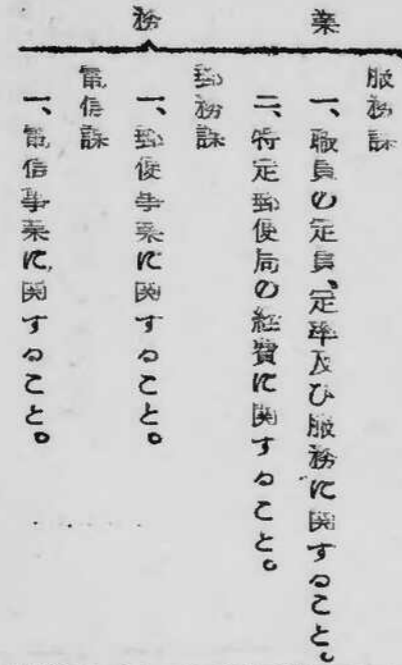 業務
服務課
一、職員の定員、定率及び服務に関すること。
二、特定郵便局の経費に関すること。
郵務課
一、郵便事業に関すること。
電信課
一、電信事業に関すること。